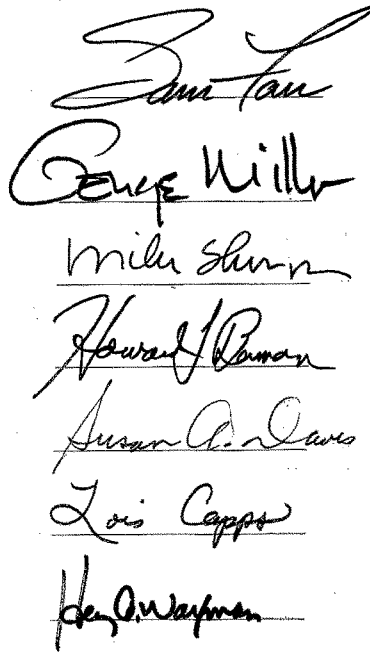 Sam Farr
George Miller
Mike Thompson
Howard L Berman
Susan A. Davis
Lois Capps
Henry A. Waxman